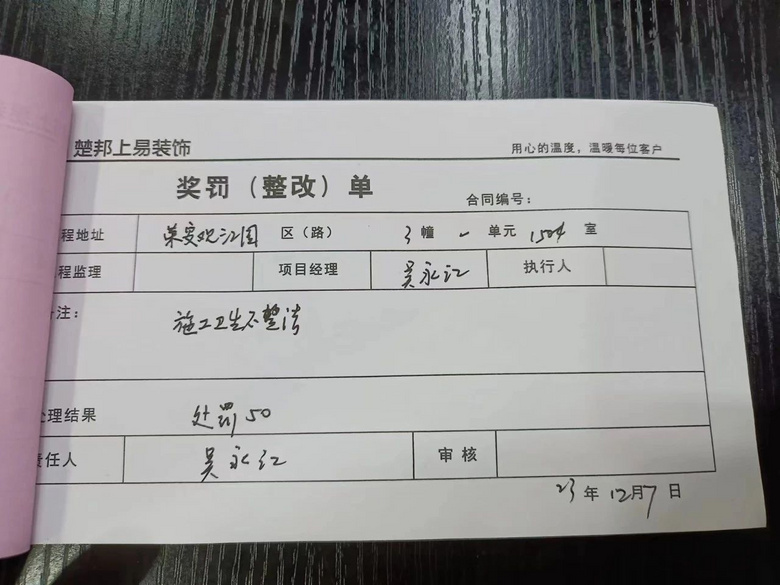 楚邦上易装饰 用心的温度，温暖每位客户
奖罚（整改）单
合同编号：
程地址 荣安观江园 区（路） 3 幢 单元 1504 室
程监理 项目经理 吴永江 执行人
注： 施工卫生不整洁
处理结果 处罚50
责任人 吴永江 审核
23 年 12 月 7 日